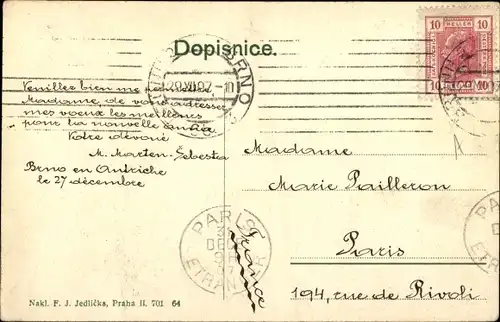 Dopisnice.
10 HELLER 10
10 10
BRNO
29 XII 07
Veuillez bien me
Madame, de vous adresser
mes voeux les meilleurs
pour la nouvelle année
Votre dévoué
M. Marten-Šebesta
Brno en Autriche
le 27 décembre
Madame
Marie Pailleron
Paris
194, rue de Rivoli
France
PARIS
ETRANGER
PAR
ETRAN
Nakl. F. J. Jedlička, Praha II. 701 64